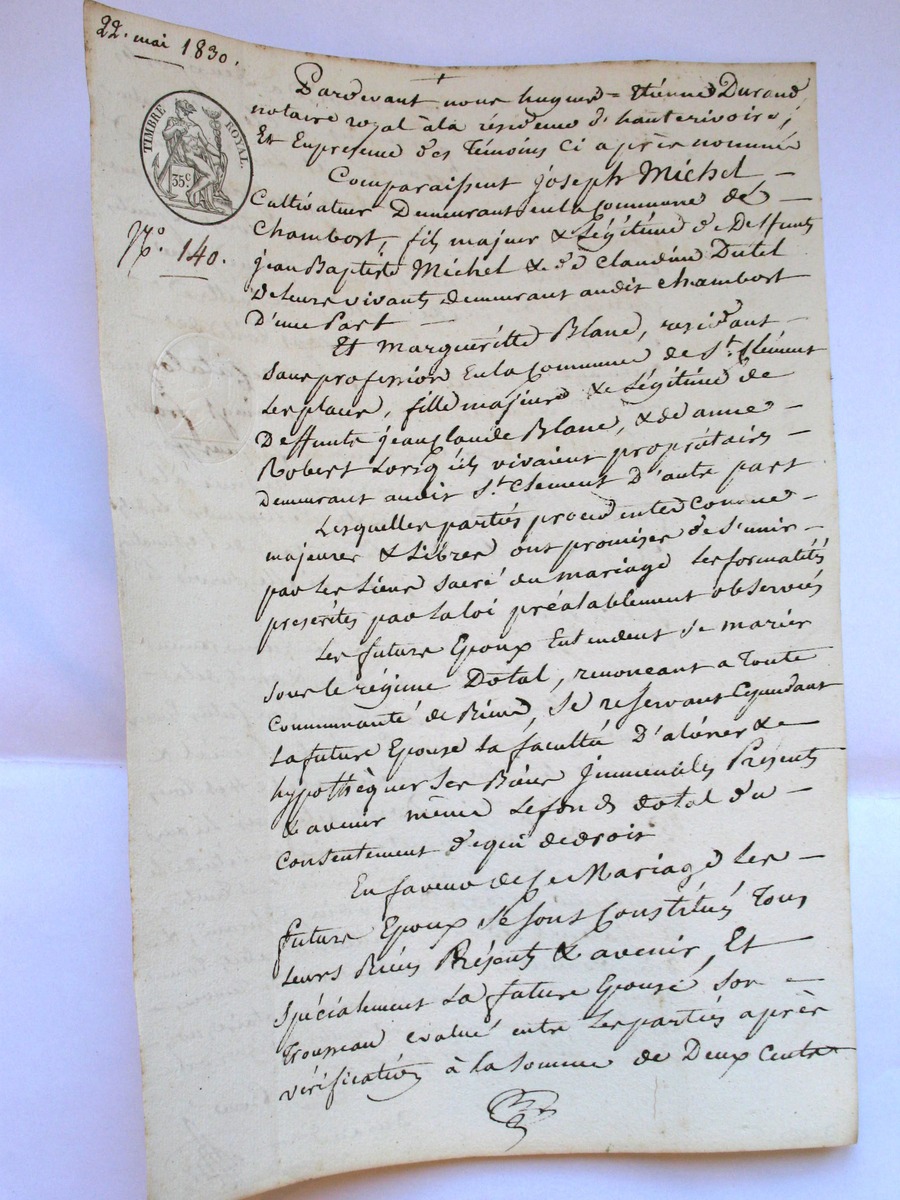 22. mai 1830.
TIMBRE ROYAL.
35c
No. 140.
Pardevant nous hugues = Etienne Durand
notaire royal à la résidence d'hauterivoire;
Et En presence des Témoins ci après nommés
Comparaissent joseph Michel
Cultivateur Demeurant en la Commune de
Chambort, fils majeur & Légitime de Deffunts
jean Baptiste Michel & de Claudine Dutel
de leurs vivants demeurant audit chambort
D'une Part
Et margueritte Blanc, residant
sans profession En la Commune de St. Clément
Les places, fille majeure & Légitime de
Deffunts jean Claude Blanc, & de anne
Robert Lorsqu'ils vivaient propriétaires
Demeurant audit St. Clement D'autre part
Lesquelles parties procedentes Comme
majeures & Libres ont promises de s'unir
par les Liens sacré du mariage les formalités
prescrites par la loi préalablement observées
Les futurs Epoux Entendent se marier
sous le régime Dotal, renonçant a Toute
Communauté de Biens, se reservant Cependant
La future Epouse La faculté D'aliéner &
hypothèquer ses Biens Immeubles Présents
& avenir même Le fonds dotal du
Consentement de qui de droit
En faveur de Ce Mariage Les
futurs Epoux se sont Constitués Tous
Leurs Biens Présents & avenir, Et
spécialement La future Epouse son
Trousseau evalué entre Les parties après
vérification à la somme de Deux Cents